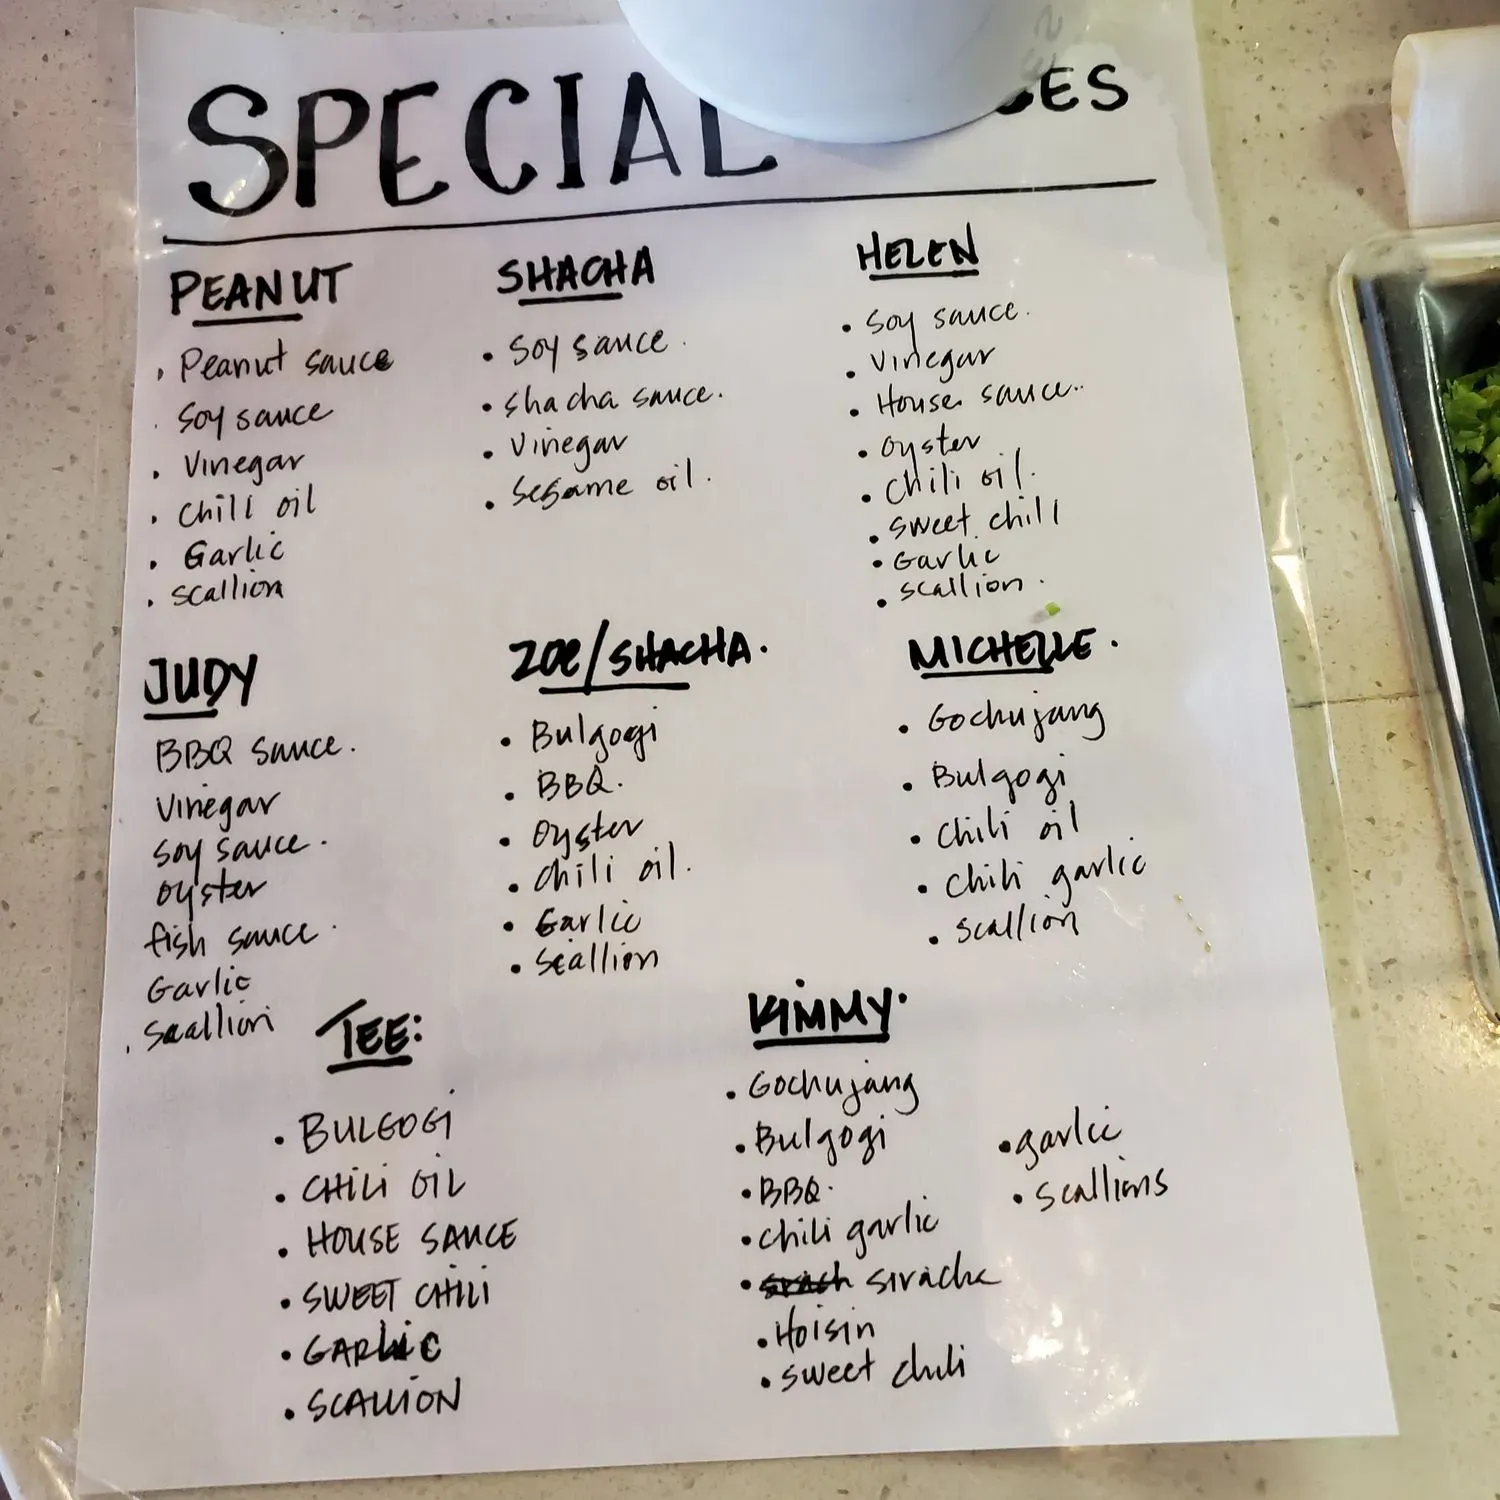 SPECIAL
PEANUT
Peanut sauce
Soy sauce
Vinegar
Chili oil
Garlic
scallion
SHACHA
Soy sauce.
shacha sauce.
Vinegar
Sesame oil.
HELEN
Soy sauce.
Vinegar
House sauce..
oyster
Chili oil.
sweet chili
Garlic
scallion.
JUDY
BBQ sauce.
Vinegar
Soy sauce.
oyster
fish sauce.
Garlic
scallion
ZOE/SHACHA.
Bulgogi
BBQ.
Oyster
chili oil.
Garlic
scallion
MICHELLE.
Gochujang
Bulgogi
chili oil
chili garlic
scallion
TEE:
BULGOGI
CHILI OIL
HOUSE SAUCE
SWEET CHILI
GARLIC
SCALLION
KIMMY.
Gochujang
Bulgogi
BBQ.
chili garlic
siracha
Hoisin
sweet chili
garlic
scallions